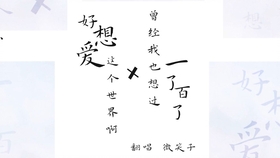 好想爱
这个世界啊
×
曾经我也想过
一了百了
翻唱 微笑千